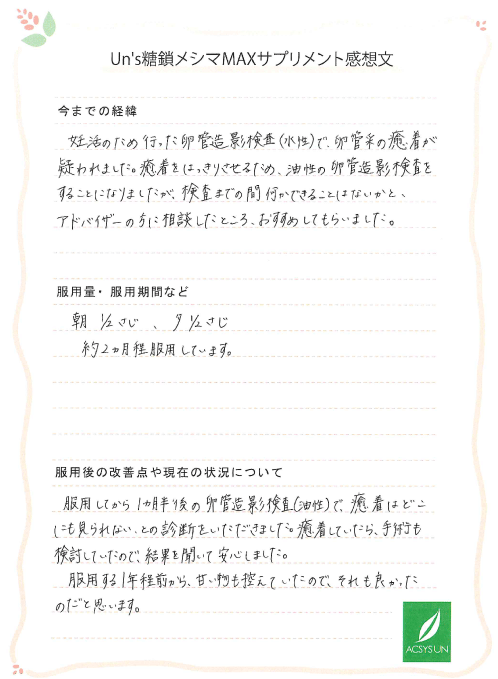 Un's糖鎖メシマMAXサプリメント感想文
今までの経緯
妊活のため行った卵管造影検査(水性)で、卵管采の癒着が
疑われました。癒着をはっきりさせるため、油性の卵管造影検査を
することになりましたが、検査までの間何かできることはないかと、
アドバイザーの方に相談したところ、おすすめしてもらいました。
服用量・服用期間など
朝 1/2さじ 、 夕 1/2さじ
約2ヵ月程服用しています。
服用後の改善点や現在の状況について
服用してから1ヵ月半後の卵管造影検査(油性)で、癒着はどこ
にも見られない、との診断をいただきました。癒着していたら、手術も
検討していたので、結果を聞いて安心しました。
服用する1年程前から、甘い物も控えていたので、それも良かった
のだと思います。
ACSYSUN